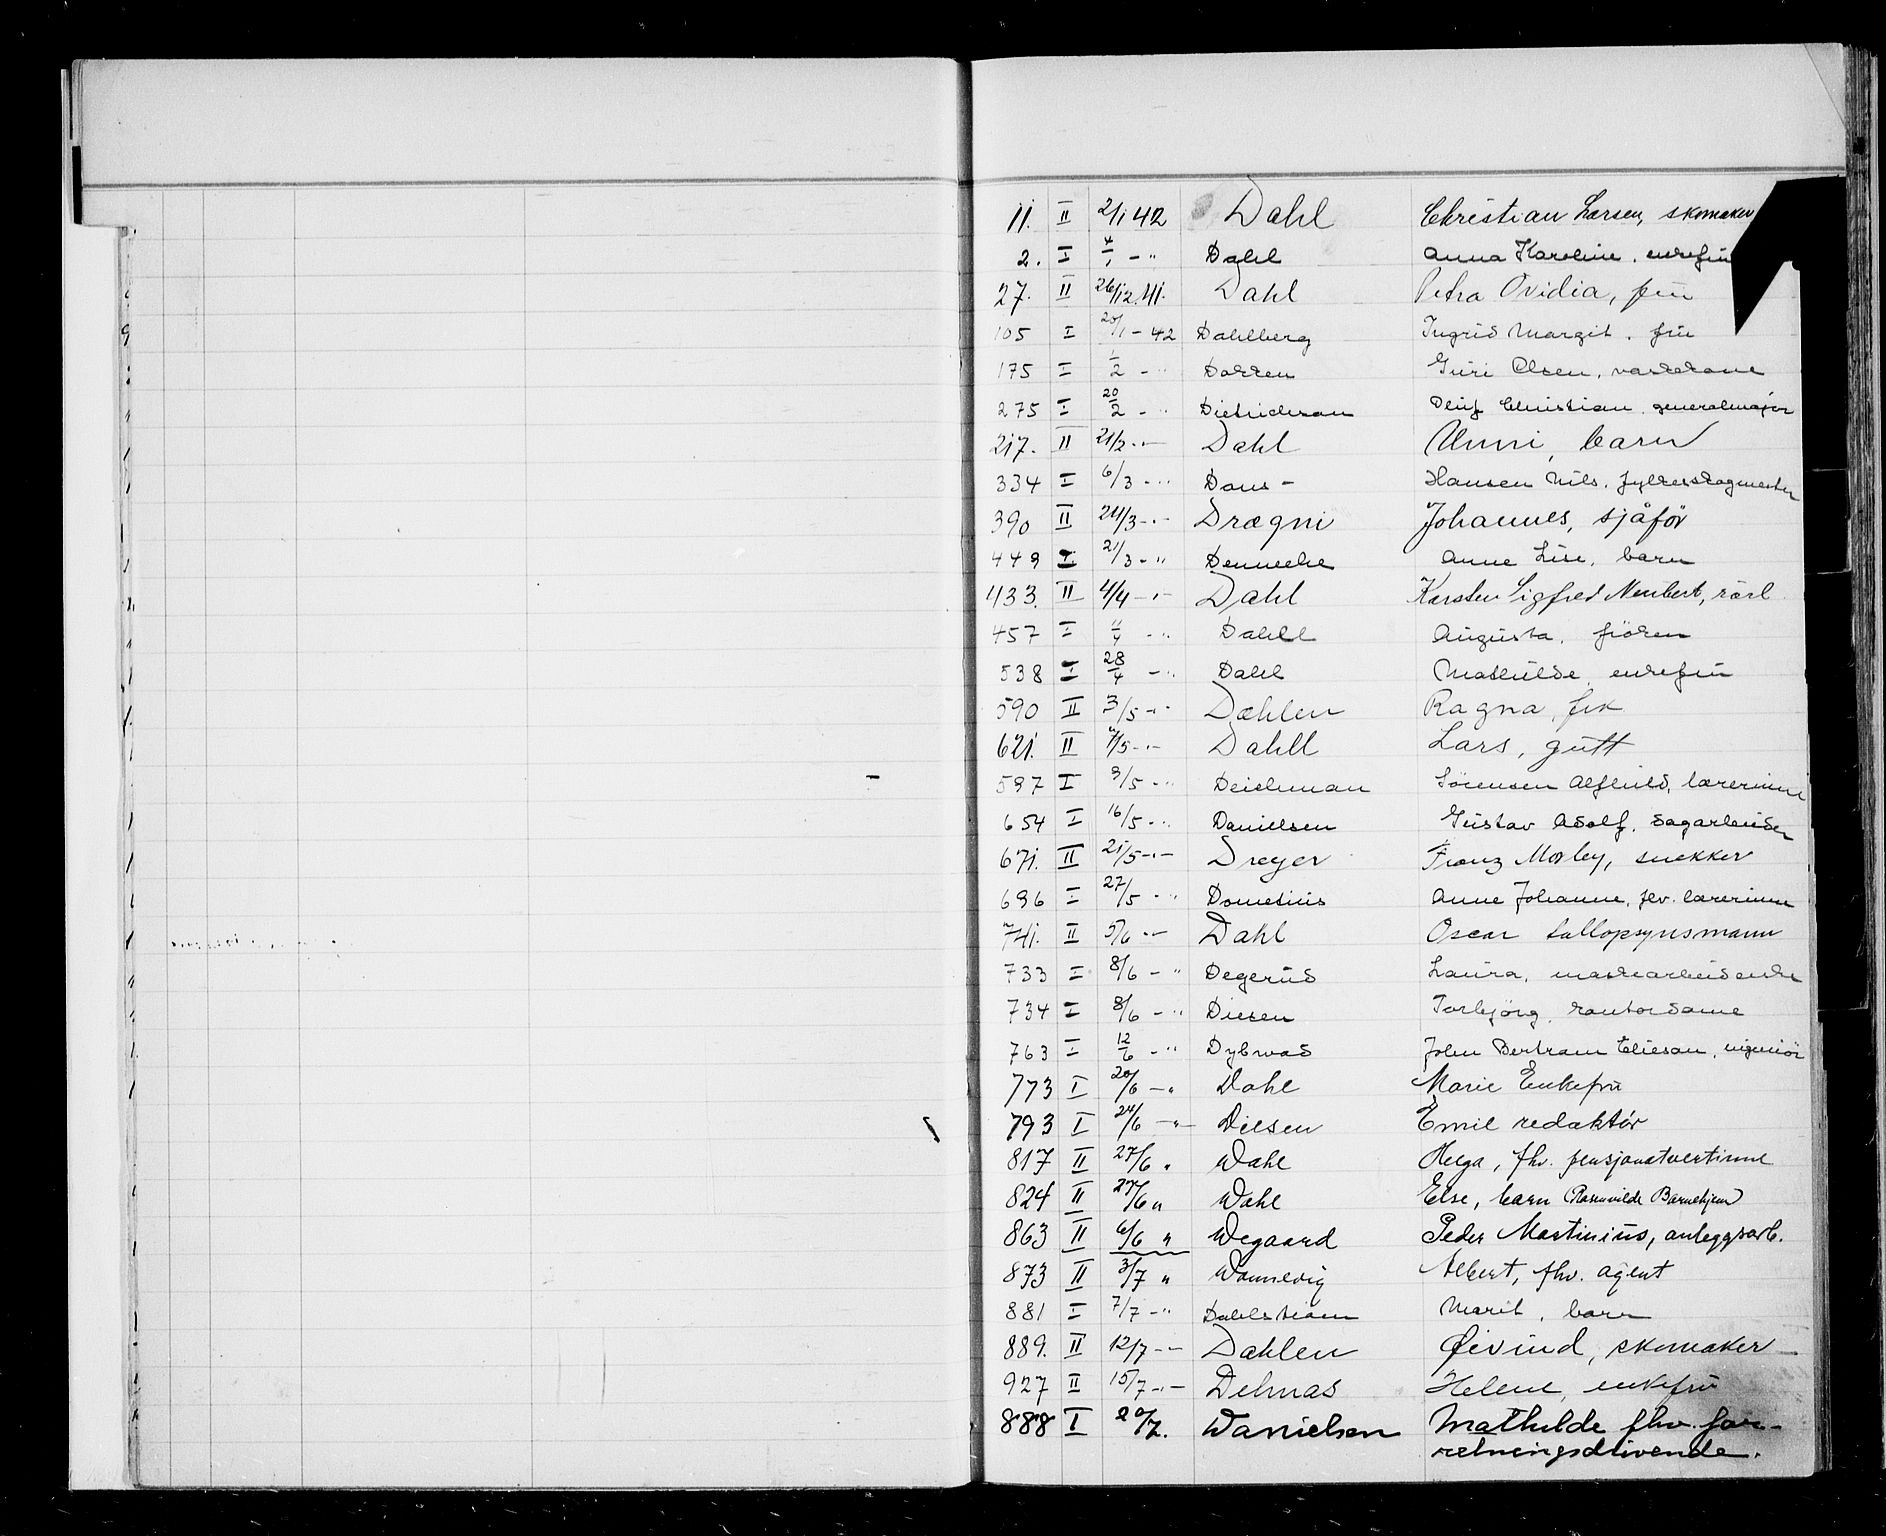 11. II 2/1 42 Dahl Christian Larsen, skomaker
2. I 4/1 - " Dahl Anna Karoline, enkefru
27. II 26/12.41. Dahl Petra Ovidia, fru
105 I 20/1 - 42 Dahlberg Ingrid Margit. fru
175 I 1/2 - " Dokken Guri Olsen, vaskekone
275 I 20/2 - " Dietrichson Christian, generalmajor
217. II 21/2 - " - Dahl Unni, barn
334 I 6/3 - " Dons - Hansen Nils, fylkesskogmester
390 II 24/3 - " - Drægni Johannes, sjåför
449 I 21/3 - " Denneche Anne Lise, barn
433. II 4/4 - " - Dahl Karsten Sigfred Neubert, rörl
457 I 11/4 - " Dahll Augusta, fröken
538 I 28/4 - " Dahl Mathilde, enkefru
590 II 3/5 - " - Dæhlen Ragna, frk
621. II 7/5 - " - Dahll Lars, gutt
597 I 9/5 - " Deichman Sörensen Alfhild, lærerinne
654 I 16/5 - " Danielsen Gustav Adolf. sagarbeider
671. II 21/5 - " - Dreyer Franz Morley, snekker
696 I 27/5 - " Dometius Anne Johanne, fhv. lærerinne
741. II 5/6 - " - Dahl Oscar tallopsynsmann
733 I 8/6 - " Degerud Laura, maskearbeiderske
734 I 8/6 - " Diesen Torbjörg, kontordame
763 I 12/6 - " Dybwad John Bertram Eliesön, ingeniör
773 I 20/6 - " Dahl Marie Enkefru
793 I 24/6 - " - Diesen Emil redaktör
817 II 27/6 " Dahl Helga, fhv. pensjonatvertinne
824 II 27/6 " Dahl Else, barn (Rosenvilde Barnehjem)
863 II 6/6 " Degaard Peder Martinius, anleggsarb.
873 II 3/7 " Dannevig Albert, fhv. agent
881 I 7/7 - " Dahlström Marit, barn
889. II 12/7 - " - Dahlen Øivind, skomaker
927 II 15/7 - " - Delmas Helene, enkefru
888 I 20/7. Danielsen Mathilde fhv. for-
retningsdrivende.